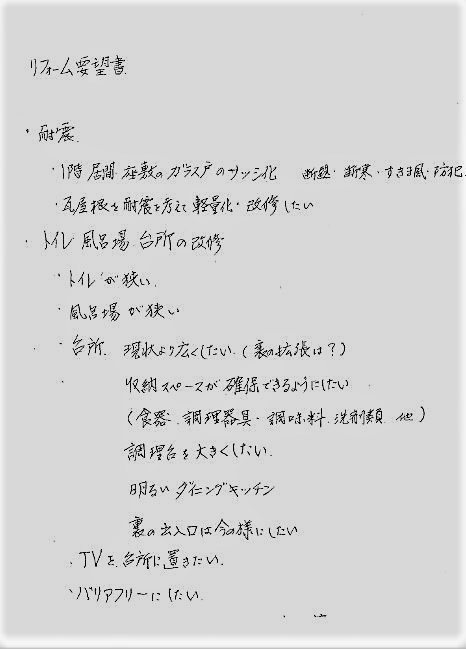 リフォーム要望書
・耐震
・1階 居間・座敷のガラス戸のサッシ化 断熱・断寒・すきま風・防犯
・瓦屋根を耐震を考えて軽量化・改修したい
・トイレ 風呂場 台所の改修
・トイレが狭い
・風呂場が狭い
・台所 現状より広くしたい(裏の拡張は?)
・収納スペースが確保できるようにしたい
(食器 調理器具・調味料 洗剤類 他)
調理台を大きくしたい
明るいダイニングキッチン
裏の出入口は今の様にしたい
・TVを台所に置きたい
・バリアフリーにしたい